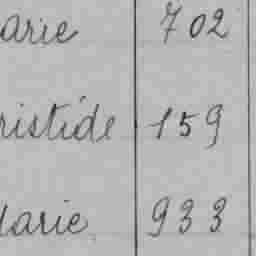 arie 702
ristide 159
Marie 933